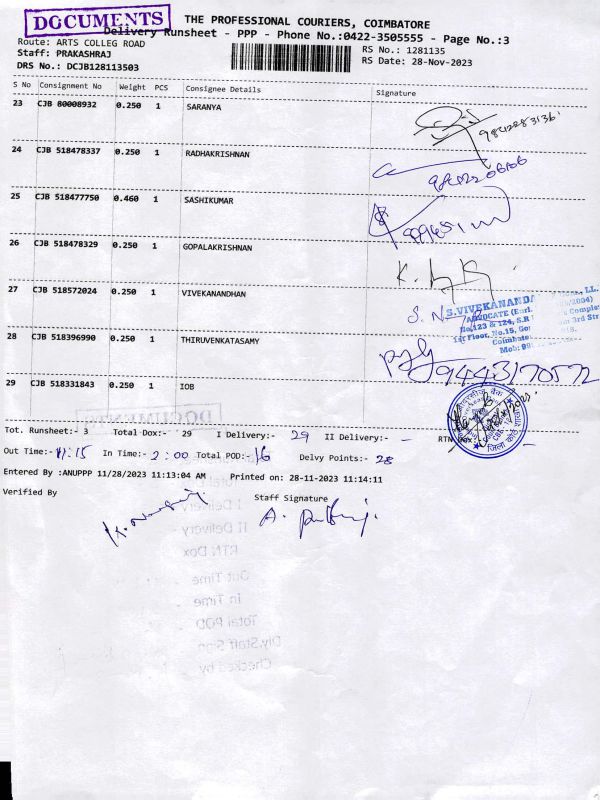 DOCUMENTS
THE PROFESSIONAL COURIERS, COIMBATORE
Delivery Runsheet - PPP - Phone No.:0422-3505555 - Page No.:3
Route: ARTS COLLEG ROAD
RS No.: 1281135
Staff: PRAKASHRAJ
RS Date: 28-Nov-2023
DRS No.: DCJB128113503
S No Consignment No Weight PCS Consignee Details Signature
23 CJB 80008932 0.250 1 SARANYA
9842283136
24 CJB 518478337 0.250 1 RADHAKRISHNAN
25 CJB 518477750 0.460 1 SASHIKUMAR
26 CJB 518478329 0.250 1 GOPALAKRISHNAN
27 CJB 518572024 0.250 1 VIVEKANANDHAN
S.VIVEKANANDA
ADVOCATE
No.123 & 124, S.R
1st Floor, No.15,
Coimbato
Mob: 99
28 CJB 518396990 0.250 1 THIRUVENKATASAMY
9443170572
29 CJB 518331843 0.250 1 IOB
DOCUMENTS
Tot. Runsheet:- 3 Total Dox:- 29 I Delivery:- 29 II Delivery:- - RTN Dox:
Out Time:- 11:15 In Time:- 2:00 Total POD:- 16 Delvy Points:- 28
Entered By :ANUPPP 11/28/2023 11:13:04 AM Printed on: 28-11-2023 11:14:11
Verified By Staff Signature
I Delivery
II Delivery
RTN Dox
Out Time
In Time
Total POD
Dly.Staff Sign
Checked by